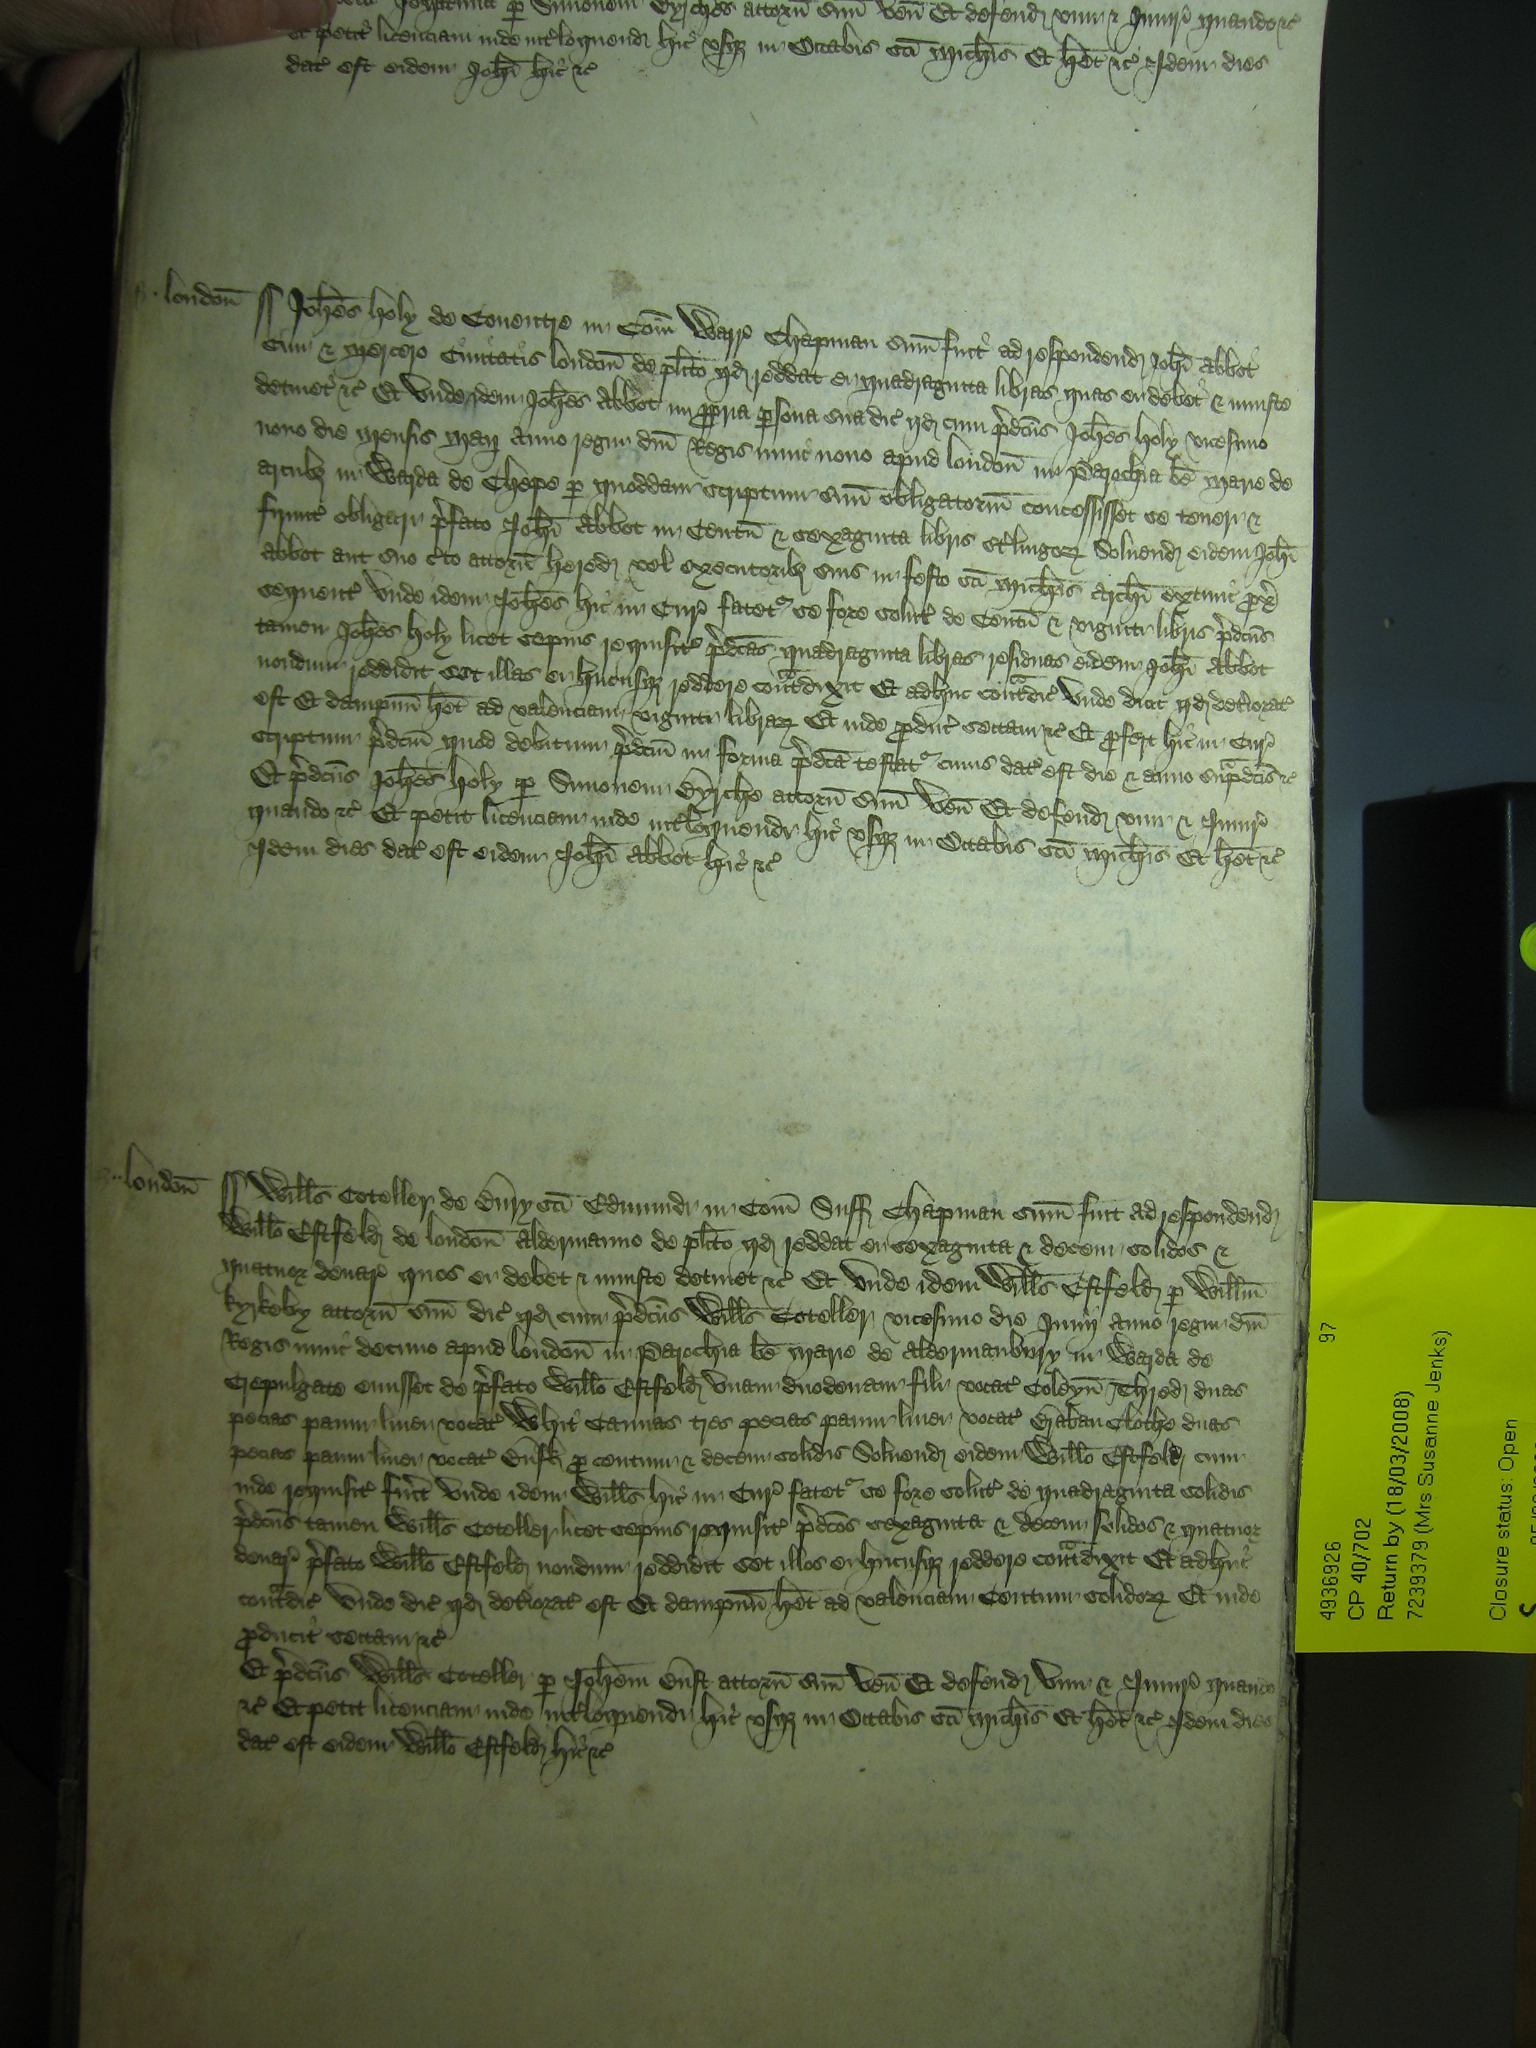 Johanna p Simonem Byrches attorn suu ven Et defend vim & Iniur quando &c
et petit licenciam inde int'loquend hic usq in Octabis sci Michis Et het &c Idem dies
dat est eidem Johi hic &c
london ss Johes holy de Couentre in Com Warr Chapman sum fuit ad respondend Johi Abbot
Ciui & Mercero Ciuitatis london de plito qd reddat ei quadraginta libras quas ei debet & iniuste
detinet &c Et unde idem Johes Abbot in ppria psona sua dic qd cum pdcus Johes holy vicesimo
nono die mensis Maij Anno regni dni Regis nunc nono apud london in Parochia be Marie de
arcubz in Warda de Chepe p quoddam scriptum suu obligatoriu concessisset se teneri &
firmit obligari pfato Johi Abbot in Centu & sexaginta libris st'lingor Soluend eidem Johi
Abbot aut suo c'to attorn hered vel executoribz suis in festo sci Michis Archi extunc px
sequent unde idem Johes hic in Cur fatet se fore solut de Centu & viginti libris pdcus
tamen Johes holy licet sepius requisit pdcas quadraginta libras residuas eidem Johi Abbot
nondum reddidit set illas ei hucusq reddere contadixit Et adhuc contadic unde dicit qd det'iorat
est Et dampnu het ad valenciam viginti librar Et inde pduc sectam &c Et pfert hic in Cur
scriptum pdcm quod debitum pdcm in forma pdca testat cuius dat est die & anno supadcis &c
Et pdcus Johes holy p Simonem Byrche attorn suu ven Et defend vim & Iniur
quando &c Et petit licenciam inde int'loquendi hic usq in Octabis sci Michis Et het &c
Idem dies dat est eidem Johi Abbot hic &c
london ss Wills Coteller de Bury sci Edmundi in Com Suff Chapman sum fuit ad respondend
Willo Estfeld de london Aldermanno de plito qd reddat ei sexaginta & decem solidos &
quatuor denar quos ei debet & iniuste detinet &c Et unde idem Wills Estfeld p Willm
kyrkeby attorn suu dic qd cum pdcus Wills Coteller vicesimo die Junij Anno regni dni
Regis nunc decimo apud london in Parochia be Marie de Aldermanbury in Warda de
Crepulgate emisset de pfato Willo Estfeld unam duodenam fili vocat Coleyn Thred duas
pecias panni linei vocat Whit Canuas tres pecias panni linei vocat Braban Clothe duas
pecias panni linei vocat Busk p centum & decem solidis Soluend eidem Willo Estfeld cum
inde requisit fuit unde idem Wills hic in Cur fatet se fore solut de quadraginta solidis
pdcus tamen Wills Coteller licet sepius requisit pdcos sexaginta & decem solidos & quatuor
denar pfato Willo Estfeld nondum reddidit set illos ei hucusq reddere contadixit Et adhuc
contadic unde dic qd det'iorat est Et dampnu het ad valenciam Centum solidor Et inde
producit sectam &c
Et pdcus Wills Coteller p Johem Bust attorn suu ven Et defend vim & Iniur quando
&c Et petit licenciam inde int'loquendi hic usq in Octabis sci Michis Et het &c Idem dies
dat est eidem Willo Estfeld hic &c
4936926 97
CP 40/702
Return by (18/03/2008)
7239379 (Mrs Susanne Jenks)
Closure status: Open